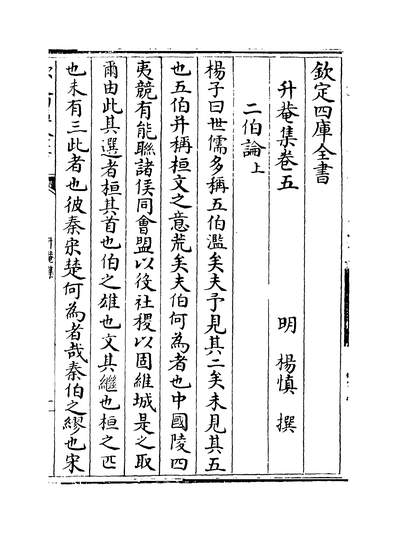 欽定四庫全書
升菴集卷五
明 楊慎 撰
二伯論上
楊子曰世儒多稱五伯濫矣夫予見其二矣未見其五
也五伯并稱桓文之意荒矣夫伯何為者也中國陵四
夷競有能聯諸侯同會盟以後社稷以固維城是之取
爾由此其選者桓其首也伯之雄也文其繼也桓之匹
也未有三此者也彼秦宋楚何為者哉秦伯之繆也宋